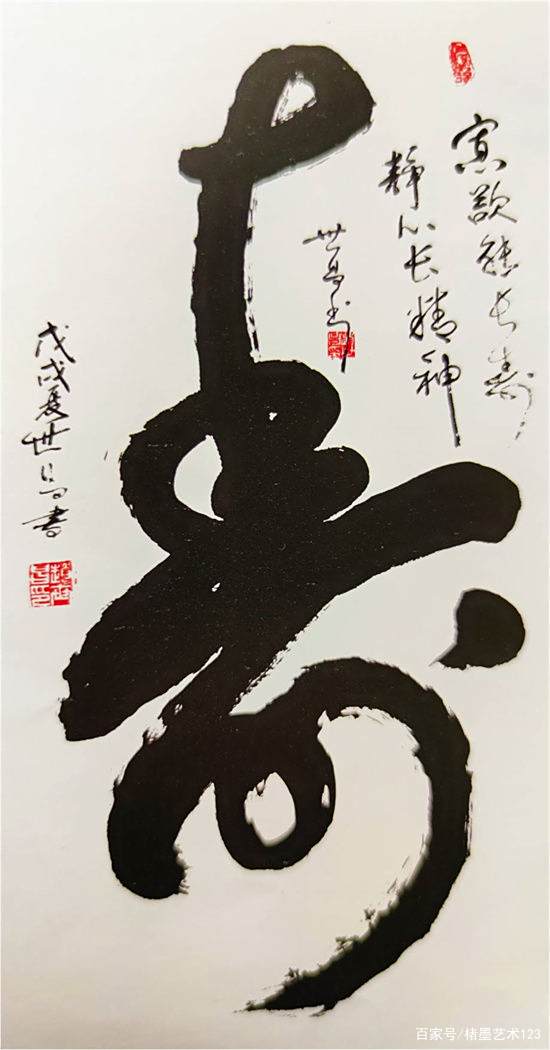 寡欲 长寿
静心长精神
世昌书
寿
戊戌夏世昌書
百家号/楮墨艺术123